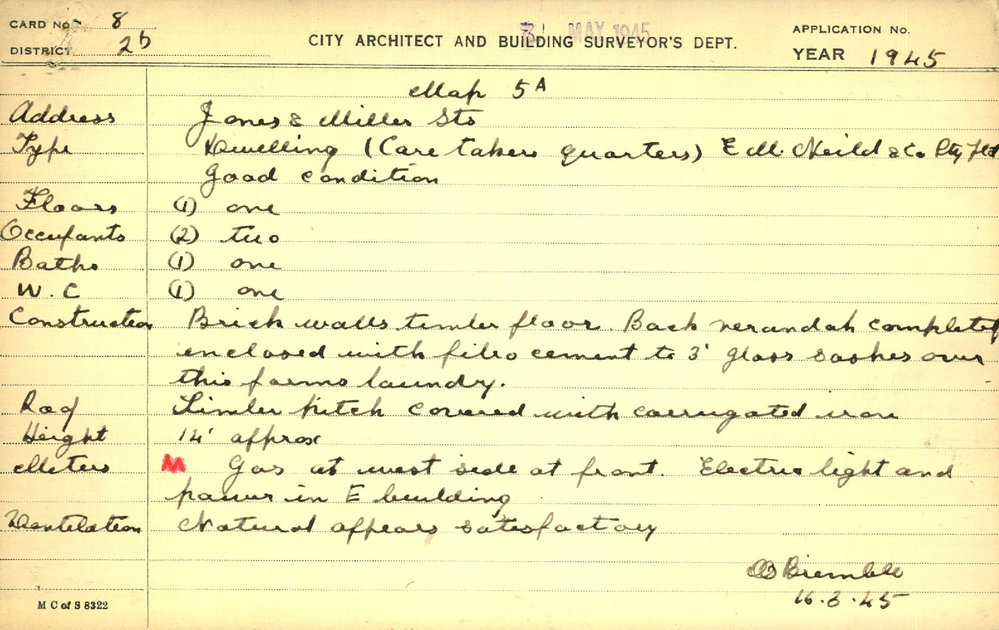 CARD No. 8
DISTRICT 2b
31 MAY 1945
CITY ARCHITECT AND BUILDING SURVEYOR'S DEPT.
APPLICATION No.
YEAR 1945
Map 5A
Address Jones & Miller Sts
Type Dwelling (Care takers quarters) E M Neild & Co Pty Ltd
good condition
Floors (1) one
Occupants (2) two
Baths (1) one
W.C (1) one
Construction Brick walls timber floor. Back verandah completely
enclosed with fibro cement to 3' glass sashes over
this forms laundry.
Roof Timber pitch covered with corrugated iron
Height 14' approx
Meters M Gas at west side at front. Electric light and
power in E building
Ventilation Natural appears satisfactory
Bremble
16.3.45
M C of S 8322